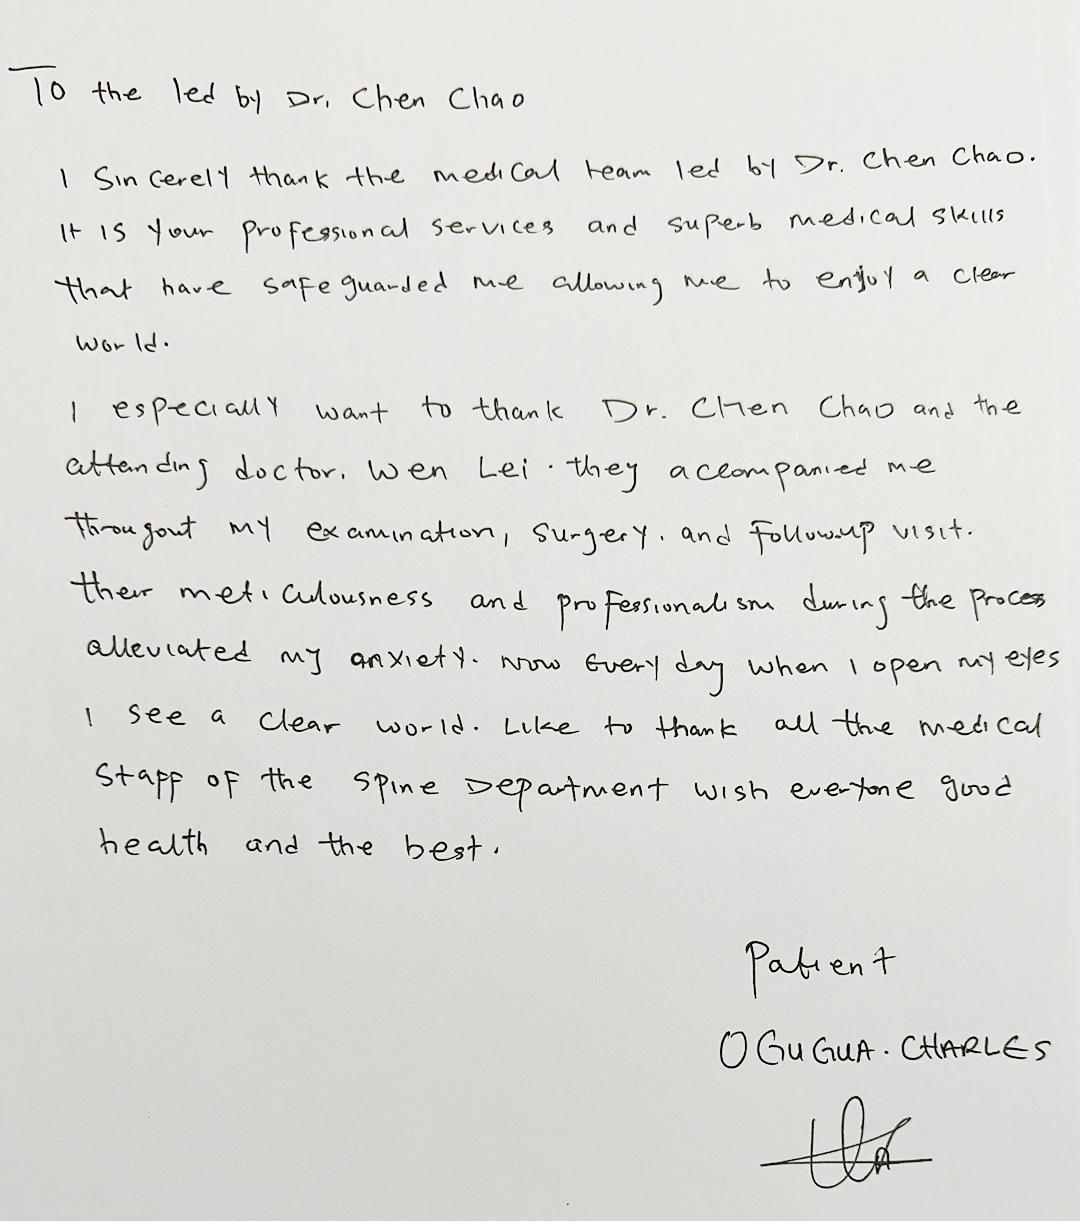 To the led by Dr. Chen Chao
I Sincerely thank the medical team led by Dr. Chen Chao.
It is your professional services and superb medical skills
that have safeguarded me allowing me to enjoy a clear
world.
I especially want to thank Dr. Chen Chao and the
attending doctor. Wen Lei. they accompanied me
througout my examination, surgery. and followup visit.
their meticulousness and professionalism during the process
alleviated my anxiety. Now every day when I open my eyes
I see a clear world. Like to thank all the medical
Staff of the Spine Department wish everyone good
health and the best.
Patient
OGUGUA. CHARLES